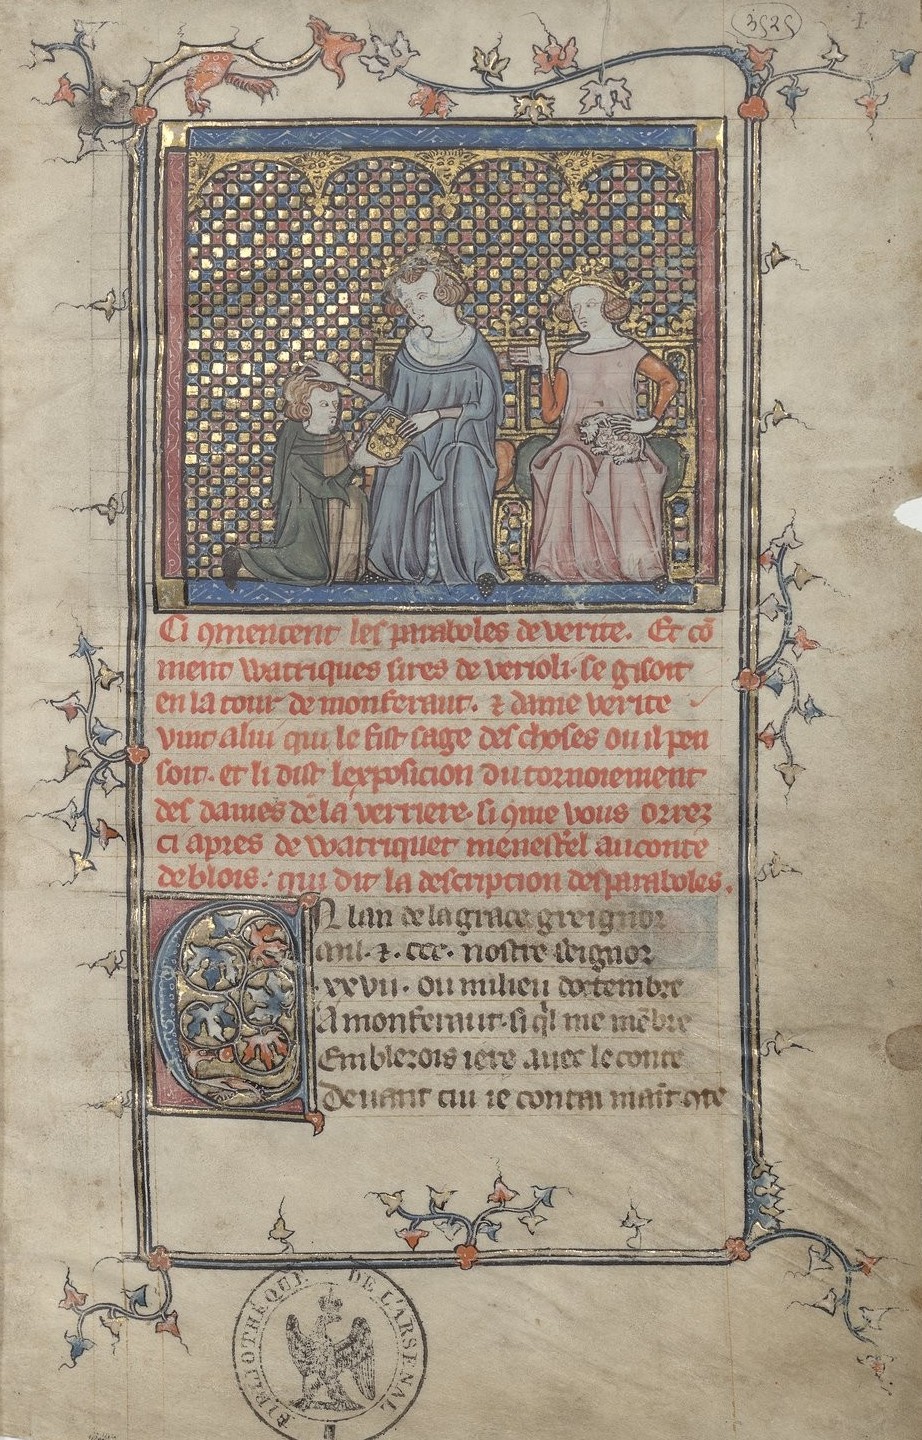 3525
1.
Ci ꝯmencent les paraboles de verite. Et cō
ment watriques sires de verioli · se gisoit
en la tour de monferaut. ⁊ dame verite
vint a lui qui le fist sage des choses ou il pen
soit. et li dist lexposicion du tornoiement
des dames de la verriere · si ꝯme vous orrez
ci apres de watriquet menestrel au conte
de blois : qui dit la description des paraboles.
En lan de la grace greignor
mil · ⁊ · ccc · nostre seignor
xxvii · ou milieu doctembre
A monferaut · si ql me mēbre
En blezois iere auec le conte
Deuant cui ie contai maīt ꝯte
BIBLIOTHEQUE DE L'ARSENAL